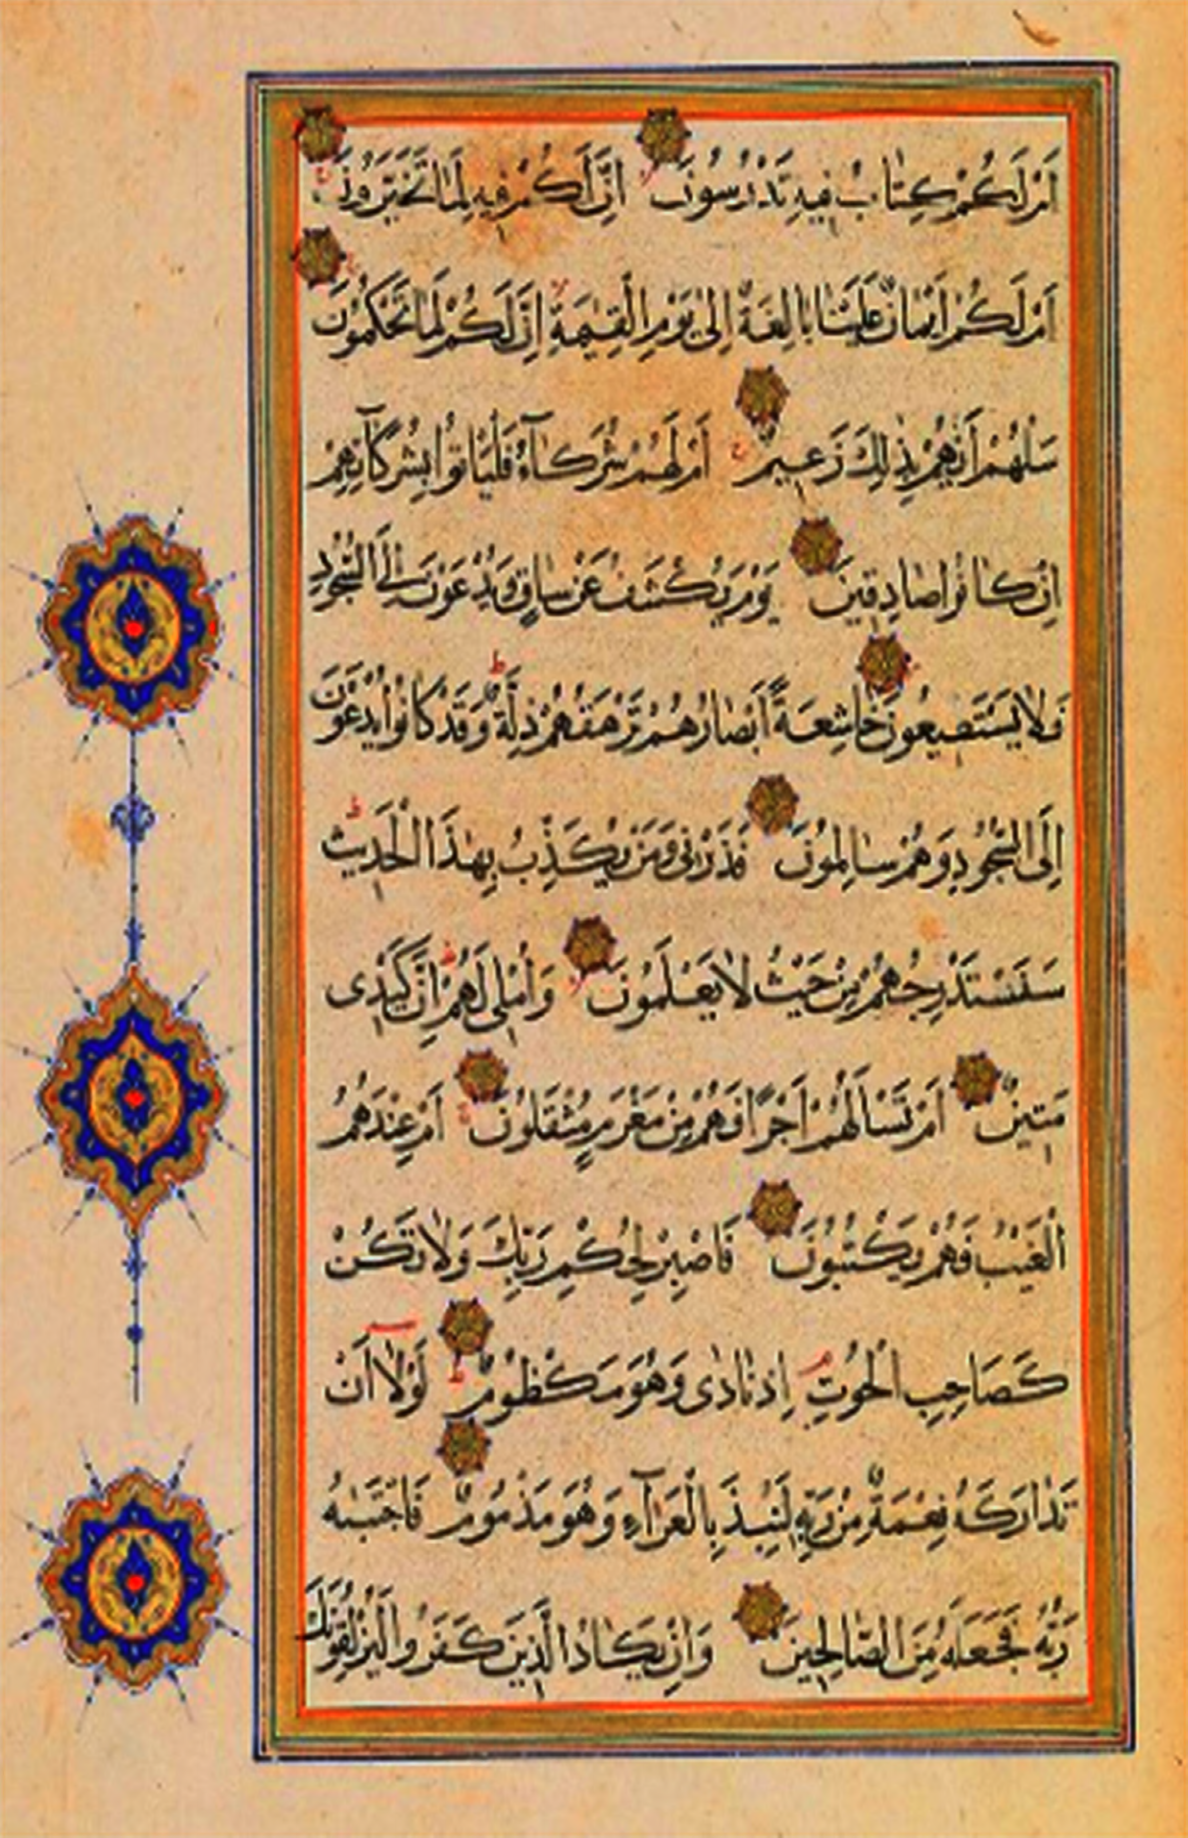 اَمْ لَكُمْ كِتَابٌ فِيهِ تَدْرُسُونَ اِنَّ لَكُمْ فِيهِ لَمَا تَخَيَّرُونَ
اَمْ لَكُمْ اَيْمَانٌ عَلَيْنَا بَالِغَةٌ اِلٰى يَوْمِ الْقِيٰمَةِ اِنَّ لَكُمْ لَمَا تَحْكُمُونَ
سَلْهُمْ اَيُّهُمْ بِذٰلِكَ زَعِيمٌ اَمْ لَهُمْ شُرَكَآءُ فَلْيَاْتُوا بِشُرَكَآئِهِمْ
اِنْ كَانُوا صَادِقِينَ يَوْمَ يُكْشَفُ عَنْ سَاقٍ وَيُدْعَوْنَ اِلَى السُّجُودِ
فَلَا يَسْتَطِيعُونَ خَاشِعَةً اَبْصَارُهُمْ تَرْهَقُهُمْ ذِلَّةٌ وَقَدْ كَانُوا يُدْعَوْنَ
اِلَى السُّجُودِ وَهُمْ سَالِمُونَ فَذَرْنِى وَمَنْ يُكَذِّبُ بِهٰذَا الْحَدِيثِ
سَنَسْتَدْرِجُهُمْ مِنْ حَيْثُ لَا يَعْلَمُونَ وَاُمْلِى لَهُمْ اِنَّ كَيْدِى
مَتِينٌ اَمْ تَسْاَلُهُمْ اَجْرًا فَهُمْ مِنْ مَغْرَمٍ مُثْقَلُونَ اَمْ عِنْدَهُمُ
الْغَيْبُ فَهُمْ يَكْتُبُونَ فَاصْبِرْ لِحُكْمِ رَبِّكَ وَلَا تَكُنْ
كَصَاحِبِ الْحُوتِ اِذْ نَادٰى وَهُوَ مَكْظُومٌ لَوْلَآ اَنْ
تَدَارَكَهُ نِعْمَةٌ مِنْ رَبِّهِ لَنُبِذَ بِالْعَرَآءِ وَهُوَ مَذْمُومٌ فَاجْتَبٰهُ
رَبُّهُ فَجَعَلَهُ مِنَ الصَّالِحِينَ وَاِنْ يَكَادُ الَّذِينَ كَفَرُوا لَيُزْلِقُونَكَ